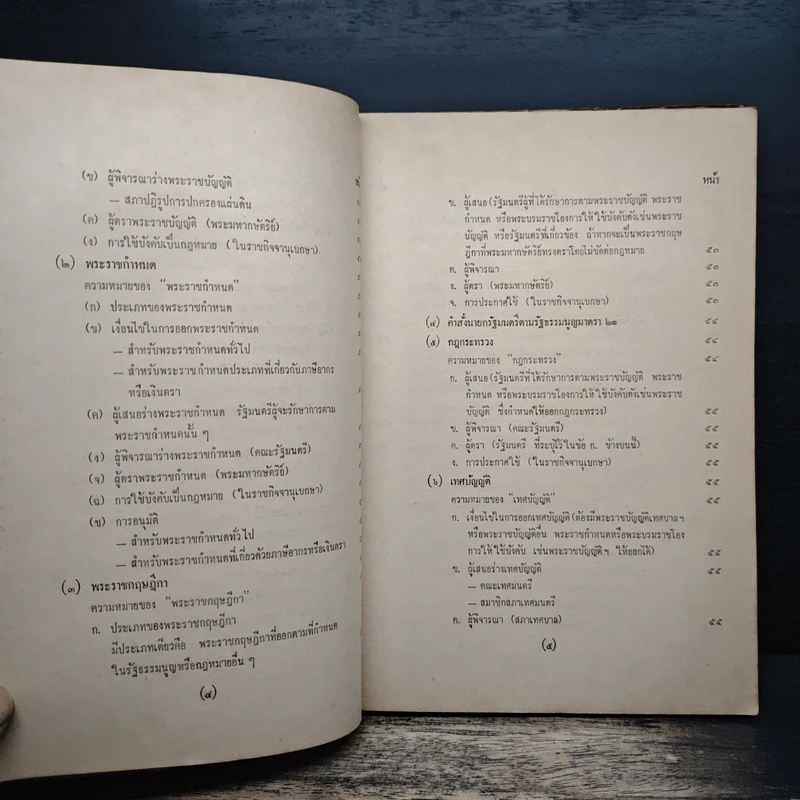 (ข) ผู้พิจารณาร่างพระราชบัญญัติ
— สภาปฏิรูปการปกครองแผ่นดิน
(ค) ผู้ตราพระราชบัญญัติ (พระมหากษัตริย์)
(ง) การใช้บังคับเป็นกฎหมาย (ในราชกิจจานุเบกษา)
(๒) พระราชกำหนด
ความหมายของ “พระราชกำหนด”
(ก) ประเภทของพระราชกำหนด
(ข) เงื่อนไขในการออกพระราชกำหนด
— สำหรับพระราชกำหนดทั่วไป
— สำหรับพระราชกำหนดประเภทที่เกี่ยวกับภาษีอากร
หรือเงินตรา
(ค) ผู้เสนอร่างพระราชกำหนด รัฐมนตรีผู้จะรักษาการตาม
พระราชกำหนดนั้น ๆ
(ง) ผู้พิจารณาร่างพระราชกำหนด (คณะรัฐมนตรี)
(จ) ผู้ตราพระราชกำหนด (พระมหากษัตริย์)
(ฉ) การใช้บังคับเป็นกฎหมาย (ในราชกิจจานุเบกษา)
(ช) การอนุมัติ
— สำหรับพระราชกำหนดทั่วไป
— สำหรับพระราชกำหนดที่เกี่ยวด้วยภาษีอากรหรือเงินตรา
(๓) พระราชกฤษฎีกา
ความหมายของ “พระราชกฤษฎีกา”
ก. ประเภทของพระราชกฤษฎีกา
มีประเภทเดียวคือ พระราชกฤษฎีกาที่ออกตามที่กำหนด
ในรัฐธรรมนูญหรือกฎหมายอื่น ๆ
(๔)
หน้า
ข. ผู้เสนอ (รัฐมนตรีผู้ที่ได้รักษาการตามพระราชบัญญัติ พระราช
กำหนด หรือพระบรมราชโองการให้ใช้บังคับดังเช่นพระราช
บัญญัติ หรือรัฐมนตรีที่เกี่ยวข้อง ถ้าหากจะเป็นพระราชกฤษ
ฎีกาที่พระมหากษัตริย์ทรงตราโดยไม่ขัดต่อกฎหมาย ๕๓
ค. ผู้พิจารณา ๕๓
ง. ผู้ตรา (พระมหากษัตริย์) ๕๓
จ. การประกาศใช้ (ในราชกิจจานุเบกษา) ๕๓
(๔) คำสั่งนายกรัฐมนตรีตามรัฐธรรมนูญมาตรา ๒๑ ๕๔
(๕) กฎกระทรวง
ความหมายของ “กฎกระทรวง” ๕๔
ก. ผู้เสนอ (รัฐมนตรีที่ได้รักษาการตามพระราชบัญญัติ พระราช
กำหนด หรือพระบรมราชโองการให้ใช้บังคับดังเช่นพระราช
บัญญัติ ซึ่งกำหนดให้ออกกฎกระทรวง) ๕๕
ข. ผู้พิจารณา (คณะรัฐมนตรี) ๕๕
ค. ผู้ตรา (รัฐมนตรี ที่ระบุไว้ในข้อ ก. ข้างบนนี้) ๕๕
ง. การประกาศใช้ (ในราชกิจจานุเบกษา) ๕๕
(๖) เทศบัญญัติ ๕๕
ความหมายของ “เทศบัญญัติ” ๕๕
ก. เงื่อนไขในการออกเทศบัญญัติ (ต้องมีพระราชบัญญัติเทศบาลฯ
หรือพระราชบัญญัติอื่น พระราชกำหนดหรือพระบรมราชโอง
การให้ใช้บังคับ เช่นพระราชบัญญัติฯ ให้ออกได้) ๕๕
ข. ผู้เสนอร่างเทศบัญญัติ ๕๕
— คณะเทศมนตรี
— สมาชิกสภาเทศมนตรี
ค. ผู้พิจารณา (สภาเทศบาล) ๕๕
(๕)